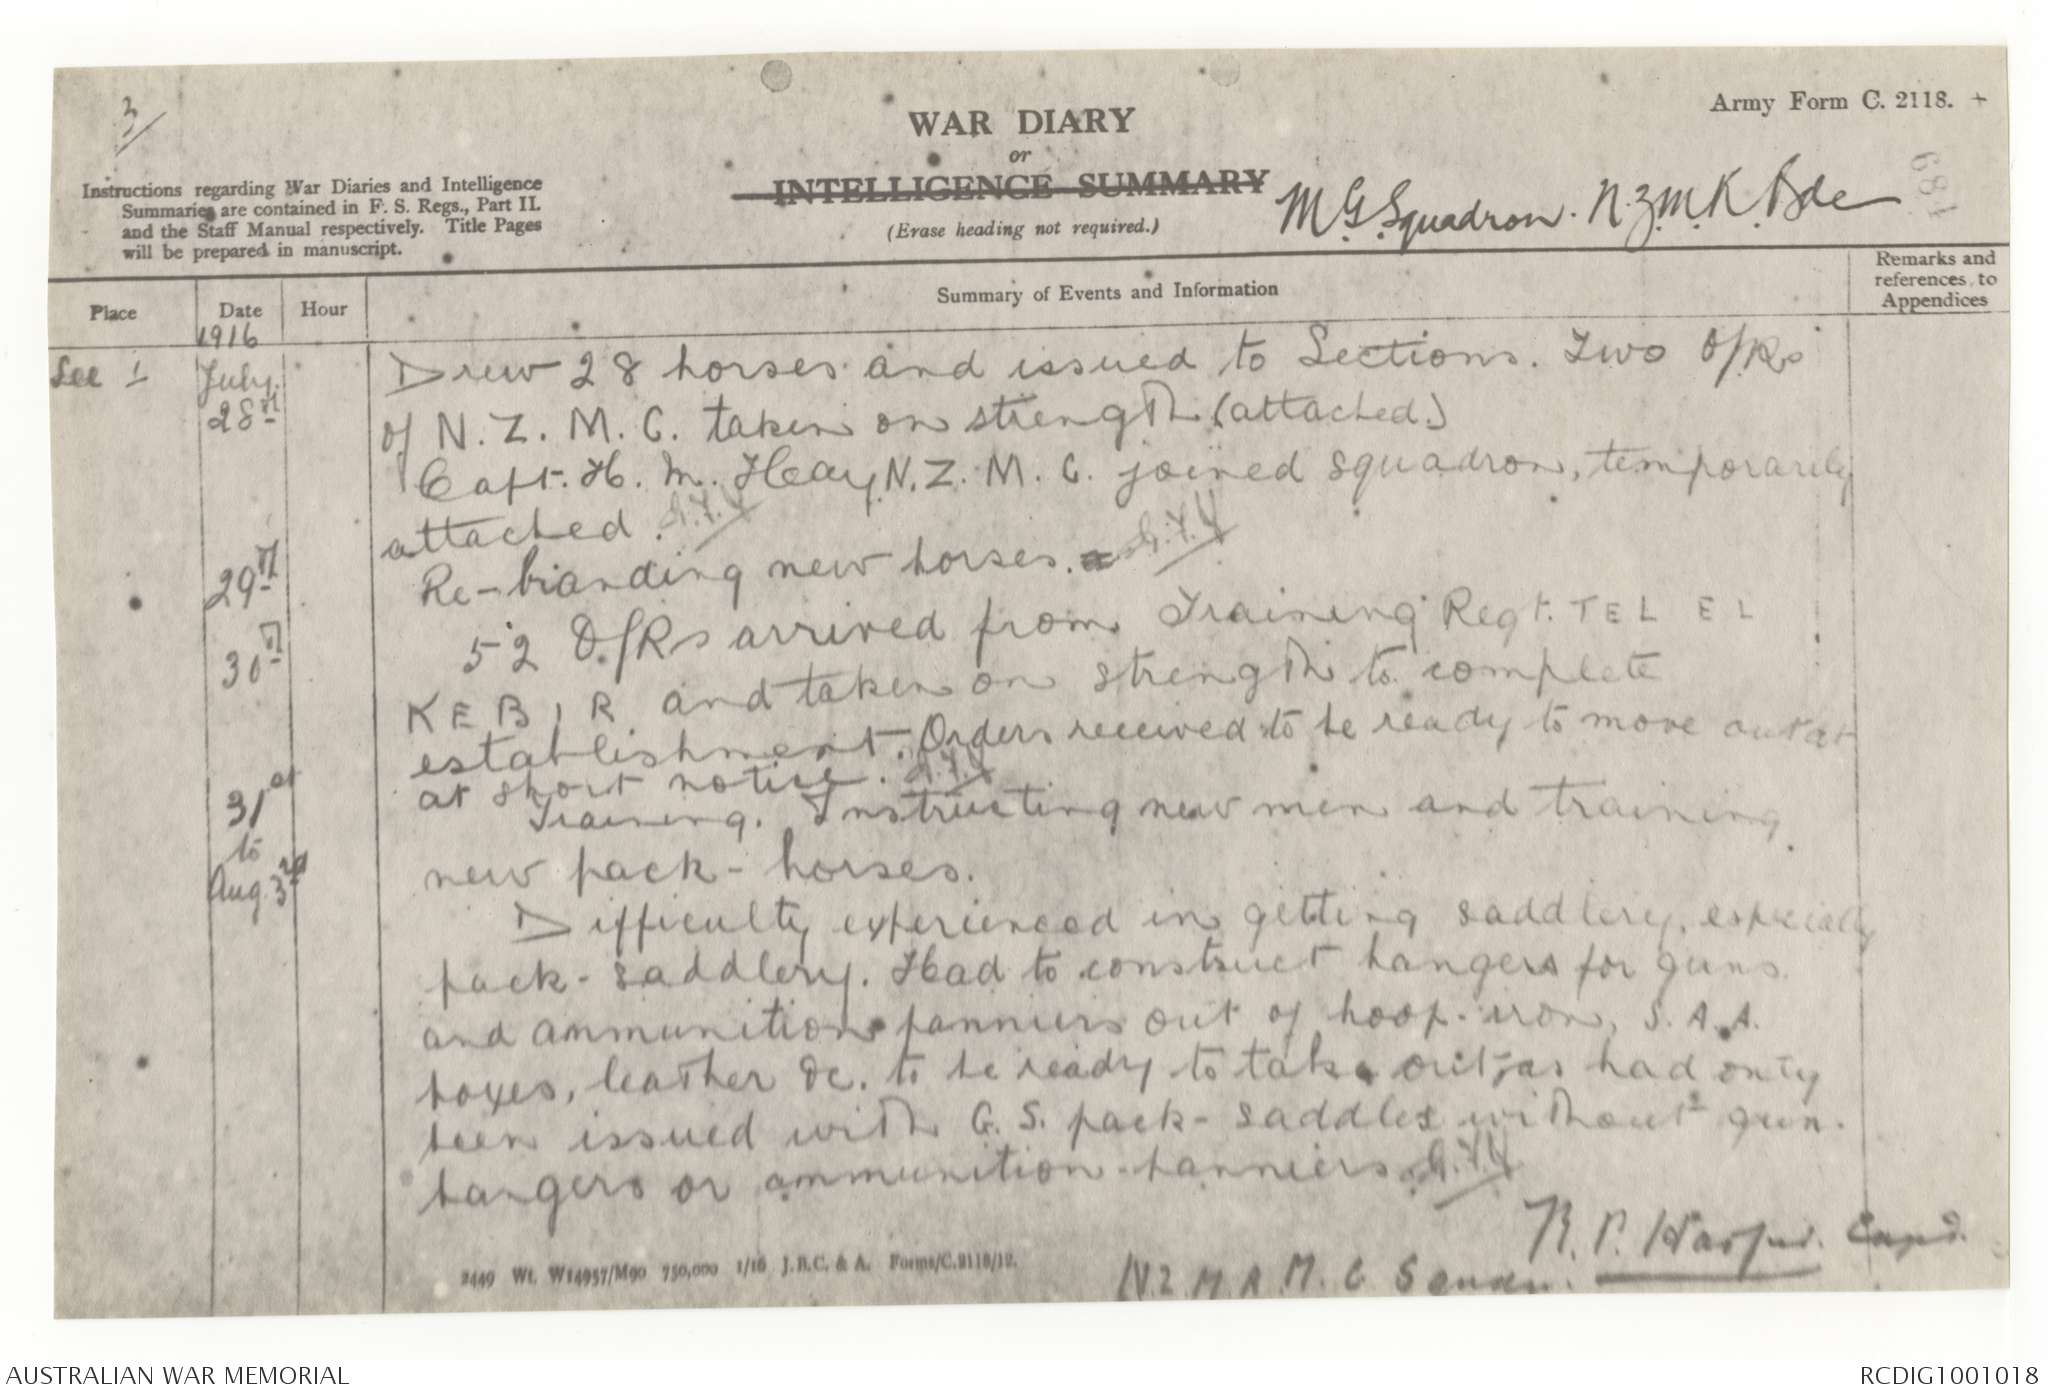 3/
Army Form C. 2118. +
WAR DIARY
or
INTELLIGENCE SUMMARY
(Erase heading not required.)
Instructions regarding War Diaries and Intelligence
Summaries are contained in F. S. Regs., Part II.
and the Staff Manual respectively. Title Pages
will be prepared in manuscript.
M.G. Squadron. N.Z.M.R. Bde
189
Place
Date
Hour
Summary of Events and Information
Remarks and
references to
Appendices
1916
See 1
July.
28th
Drew 28 horses and issued to Sections. Two O/Rs
of N.Z.M.C. taken on strength (attached.)
Capt. H. M. Hay N.Z.M.C. joined squadron, temporarily
attached.
29th
Re-branding new horses.
30th
52 O/Rs arrived from Training Regt. TEL EL
KEBIR and taken on strength to complete
establishment. Orders received to be ready to move out at
at short notice.
31st
to
Aug. 3rd
Training. Instructing new men and training
new pack-horses.
Difficulty experienced in getting saddlery, especially
pack-saddlery. Had to construct hangers for guns
and ammunition panniers out of hoop-iron, S.A.A.
boxes, leather &c. to be ready to take out, as had only
been issued with G.S. pack-saddles without gun-
hangers or ammunition-panniers.
R. P. Harper. Capt.
N.Z.M.R. M.G. Squdn.
2449 Wt. W14957/M90 750,000 1/16 J.B.C. & A. Forms/C.2118/12.
AUSTRALIAN WAR MEMORIAL
RCDIG1001018